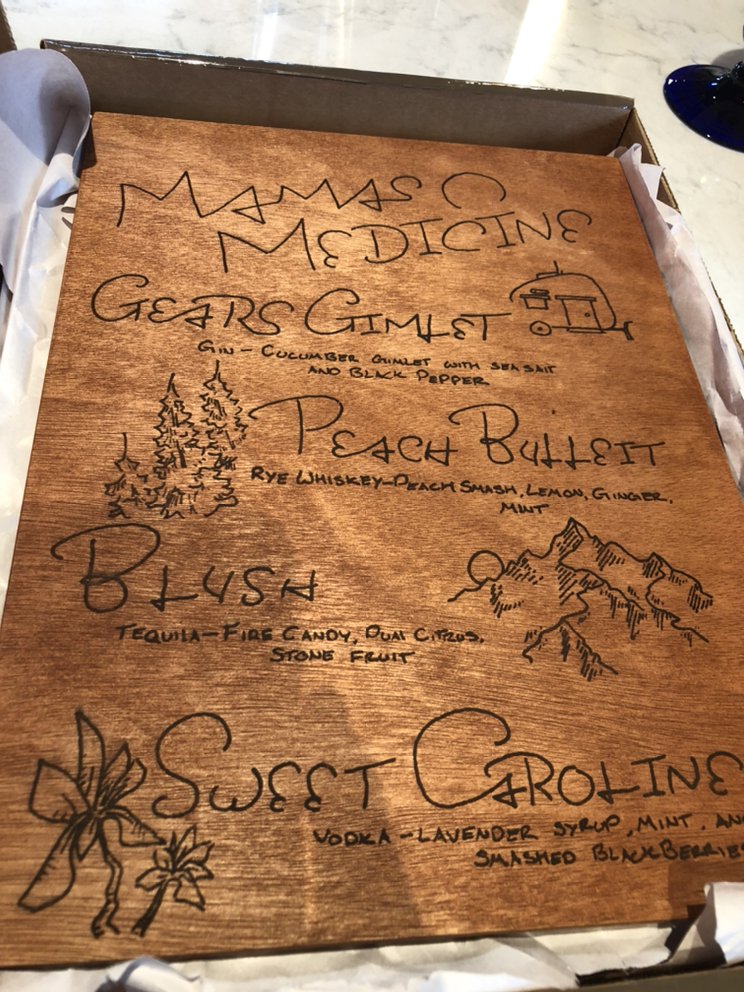 MAMAS
MEDICINE
GEARS GIMLET
GIN - CUCUMBER GIMLET WITH SEA SALT
AND BLACK PEPPER
PEACH BULLEIT
RYE WHISKEY - PEACH SMASH, LEMON, GINGER,
MINT
BLUSH
TEQUILA - FIRE CANDY, DUAL CITRUS,
STONE FRUIT
SWEET CAROLINE
VODKA - LAVENDER SYRUP, MINT, AND
SMASHED BLACKBERRIES